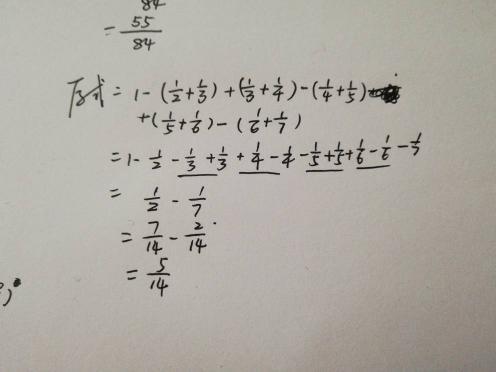 84
= 55/84
原式 = 1 - (1/2 + 1/3) + (1/3 + 1/4) - (1/4 + 1/5)
+ (1/5 + 1/6) - (1/6 + 1/7)
= 1 - 1/2 - 1/3 + 1/3 + 1/4 - 1/4 - 1/5 + 1/5 + 1/6 - 1/6 - 1/7
= 1/2 - 1/7
= 7/14 - 2/14
= 5/14